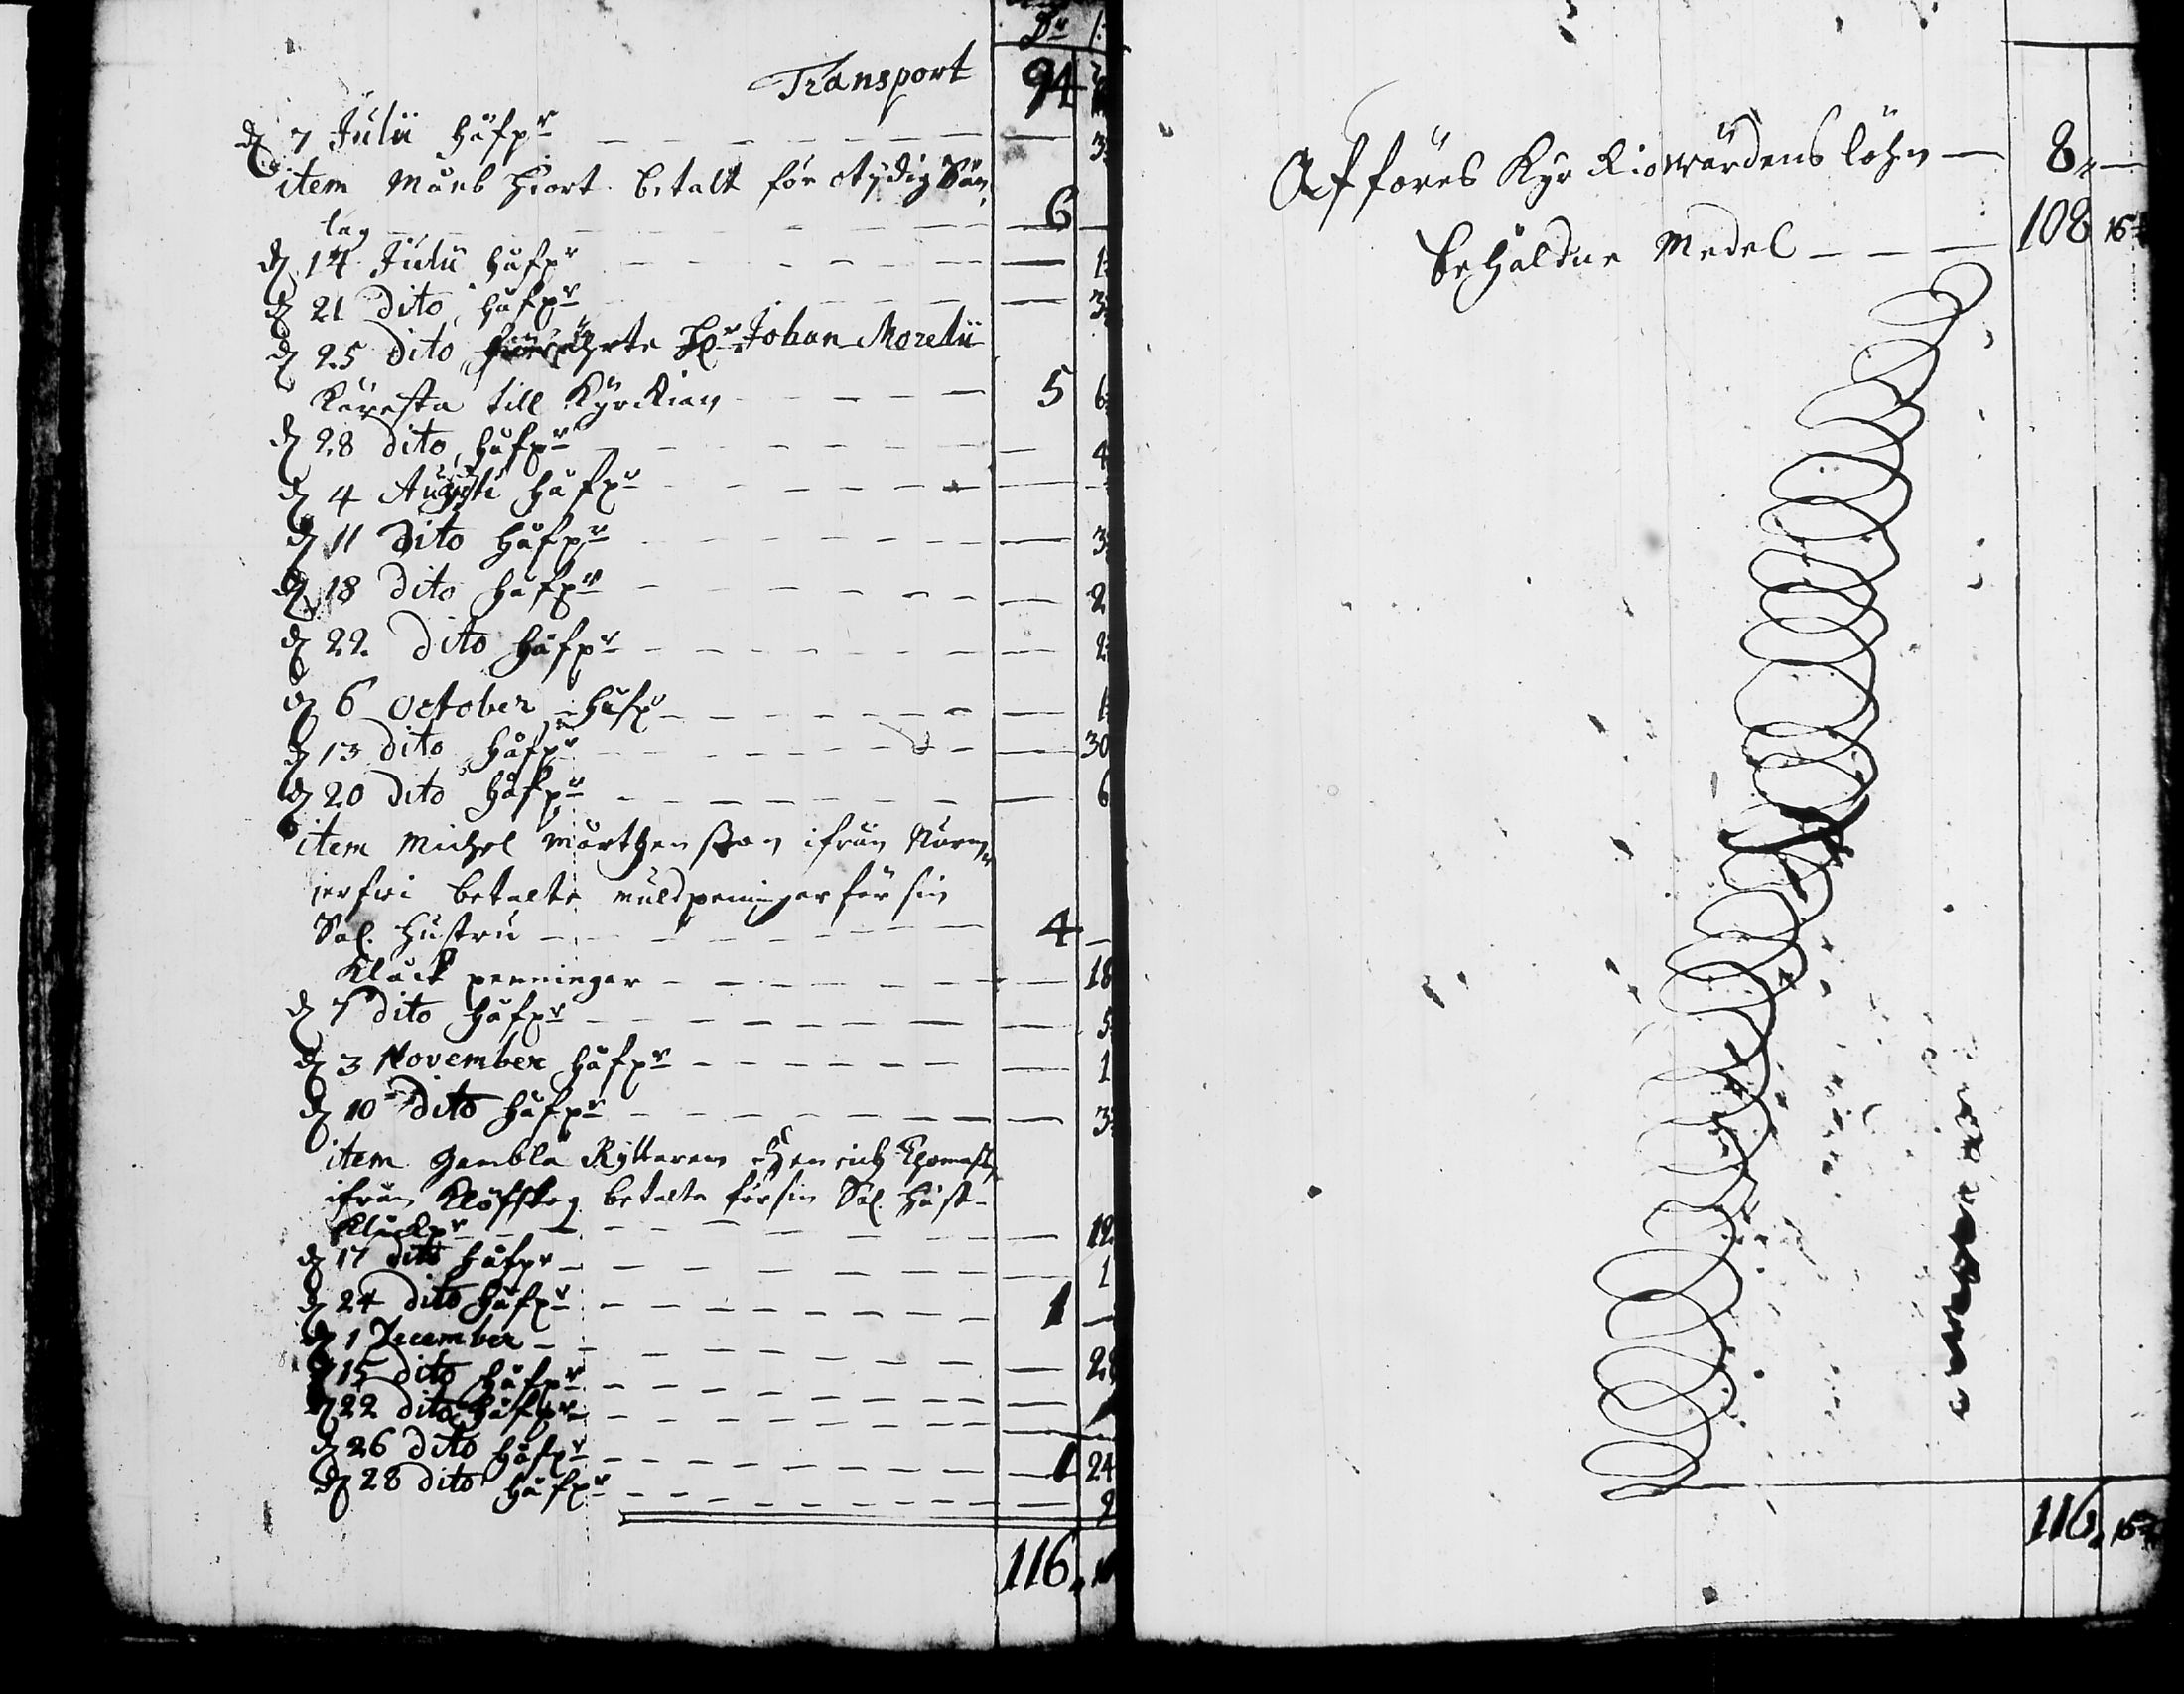 Dr
Transport 94
d 7 Julii håfpr — 3
item Måns Hiort betalt för otijdig Sän
lag — 6 —
d 14 Julii håfpr — 1
d 21 Dito, håfpr — 3
d 25 Dito, förährte Hr Johan Morelii
Käresta till Kyrckian 5 6
d 28 dito, håfpr — 4
d 4 Augusti håfpr —
d 11 Dito håfpr — 3
d 18 Dito håfpr — 2
d 22 Dito håfpr — 2
d 6 October håfpr — 1
d 13 dito håfpr — 30
d 20 Dito håfpr — 6
item Michel Mårthensson ifrån
betalte muldpeningar för sin
Sal. Hustru — 4 —
Klåck penningar — 18
d 7 dito håfpr — 5
d 3 November håfpr — 1
d 10 Dito håfpr — 3
item gambla Ryttaren Henrich Thomass
ifrån betalte för sin Sal. Hust
Klåckpr — 12
d 17 dito håfpr — 1
d 24 dito håfpr — 1 —
d 1 December — 28
d 15 dito håfpr —
d 22 dito håfpr —
d 26 dito håfpr — 1 24
d 28 dito håfpr — 9
116
Afföres Kyrckiowärdens löhn — 8 —
Behåldne Medel — 108 16
116 16